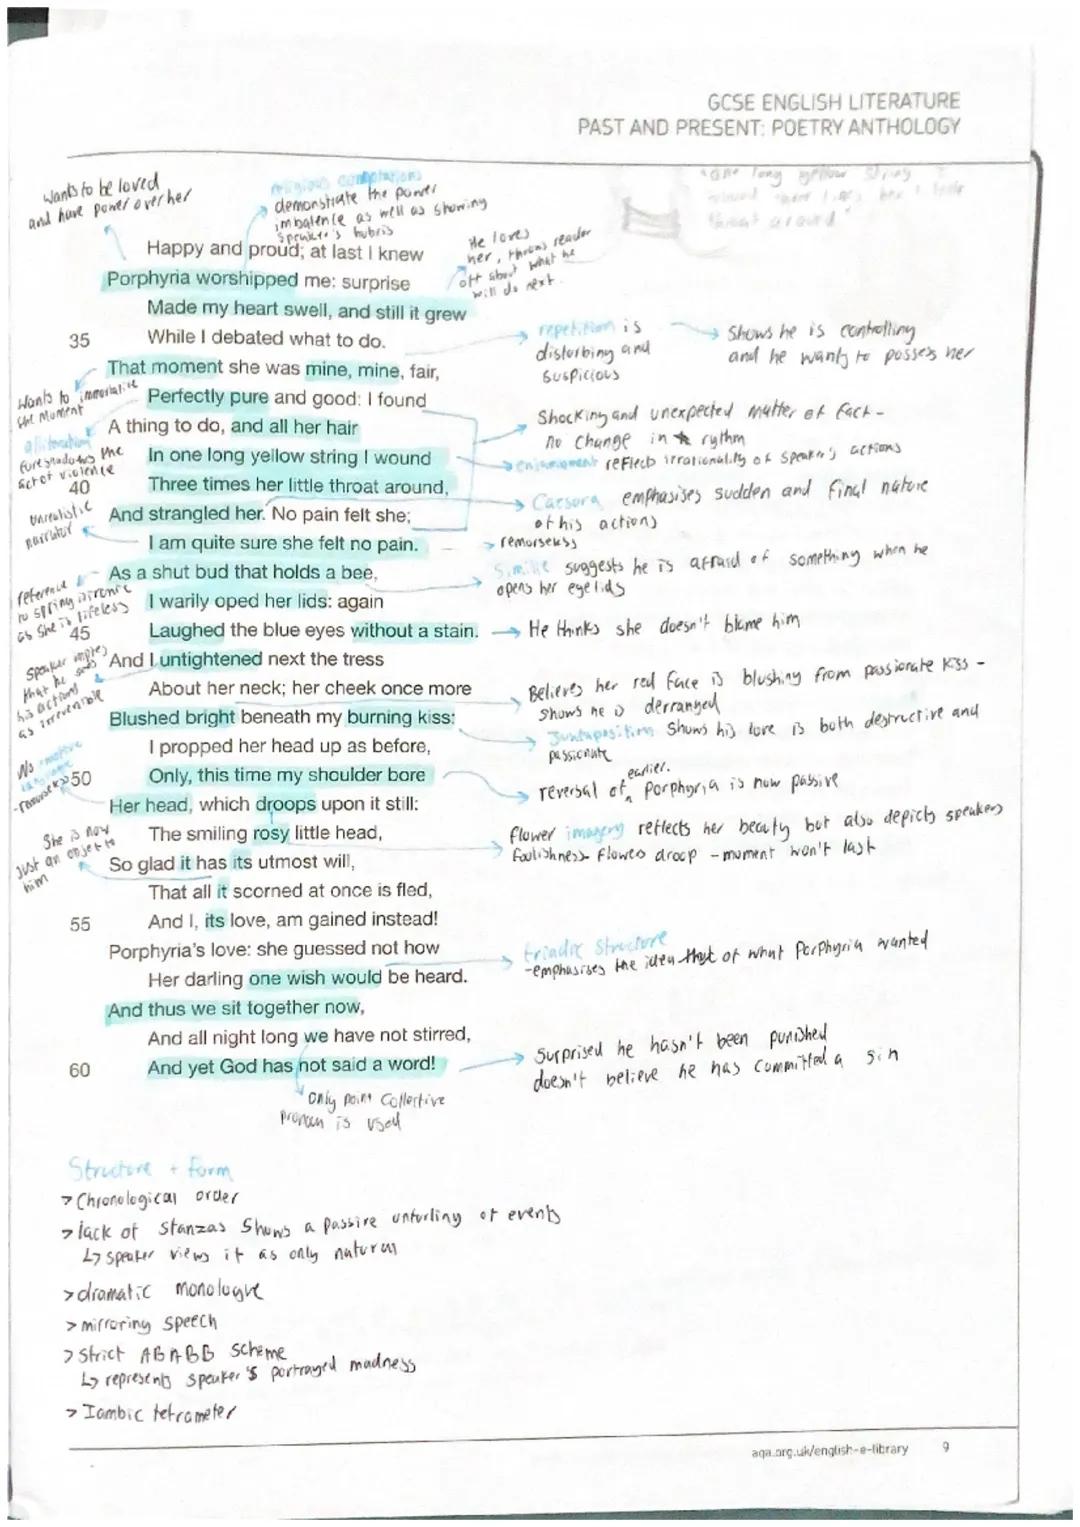 GCSE ENGLISH LITERATURE
PAST AND PRESENT: POETRY ANTHOLOGY
wants to be loved
and have power over her
religious connotations
demonstrate the power
imbalence as well as showing
speaker's hubris
He loves
her, throws reader
off about what he
will do next.
"one long yellow string I
wound three times her little
throat around"
Happy and proud; at last I knew
Porphyria worshipped me: surprise
Made my heart swell, and still it grew
35 While I debated what to do.
That moment she was mine, mine, fair,
Perfectly pure and good: I found
A thing to do, and all her hair
In one long yellow string I wound
40 Three times her little throat around,
And strangled her. No pain felt she;
I am quite sure she felt no pain.
As a shut bud that holds a bee,
I warily oped her lids: again
45 Laughed the blue eyes without a stain.
And I untightened next the tress
About her neck; her cheek once more
Blushed bright beneath my burning kiss:
I propped her head up as before,
50 Only, this time my shoulder bore
Her head, which droops upon it still:
The smiling rosy little head,
So glad it has its utmost will,
That all it scorned at once is fled,
55 And I, its love, am gained instead!
Porphyria's love: she guessed not how
Her darling one wish would be heard.
And thus we sit together now,
And all night long we have not stirred,
60 And yet God has not said a word!
repetition is
disturbing and
suspicious
Shows he is controlling
and he wants to possess her
Wants to immortalise
the moment
alliteration
foreshadows the
act of violence
unrealistic
narrator
reference
to spring ironic
as she is lifeless
speaker implies
that he sees
his actions
as irreversible
No emotive
language
-remorseless
She is now
just an object to
him
Shocking and unexpected matter of fact -
no change in rythm
enjambment reflects irrationality of speaker's actions
Caesura emphasises sudden and final nature
of his actions
remorseless
Simile suggests he is afraid of something when he
opens her eyelids
He thinks she doesn't blame him
Believes her red face is blushing from passionate kiss -
shows he is derranged
Juxtaposition shows his love is both destructive and
passionate
reversal of earlier. Porphyria is now passive
flower imagery reflects her beauty but also depicts speakers
foolishness flowers droop - moment won't last
triadic structure
-emphasises the idea that of what Porphyria wanted
Surprised he hasn't been punished
doesn't believe he has committed a sin
only point collective
pronoun is used
Structure + form
> Chronological order
> lack of stanzas shows a passive unfurling of events
↳ speaker views it as only natural
> dramatic monologue
> mirroring speech
> Strict ABABB scheme
↳ represents speaker's portrayed madness
> Iambic tetrameter
aqa.org.uk/english-e-library 9